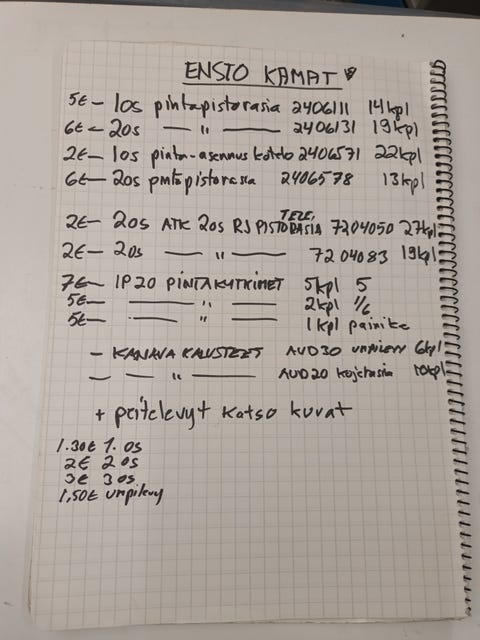 ENSTO KAMAT
5€ – 1os pintapistorasia 2406111 14kpl
6€ – 2os — " — 2406131 19kpl
2€ – 1os pinta-asennus kotelo 2406571 22kpl
6€ – 2os pintapistorasia 2406578 13kpl
2€ – 2os ATK 2os RJ PISTORASIA TELE, 7204050 27kpl
2€ – 2os — " — 7204083 19kpl
7€ – IP20 PINTAKYTKIMET 5kpl 5
5€ – — " — 2kpl 1/6
5€ – — " — 1kpl painike
– KANAVA KALUSTEET AUD30 umpilevy 6kpl
– — " — AUD20 kojerasia 10kpl
+ peitelevyt katso kuvat
1.30€ 1. os
2€ 2 os
3€ 3 os
1,50€ umpilevy